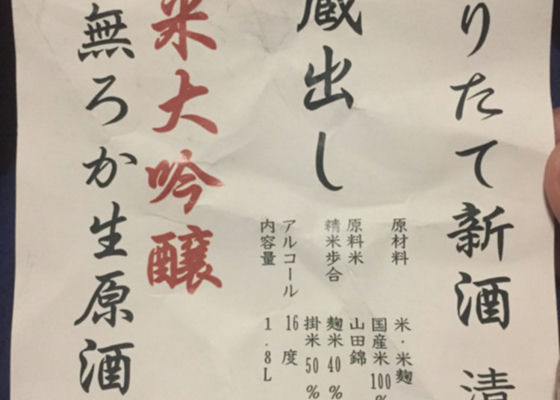 りたて新酒 清
原材料 米・米麹
国産米100%
原料米 山田錦
精米歩合 麹米40%
掛米50%
アルコール 16度
内容量 1.8L
蔵出し
米大吟醸
無ろか生原酒